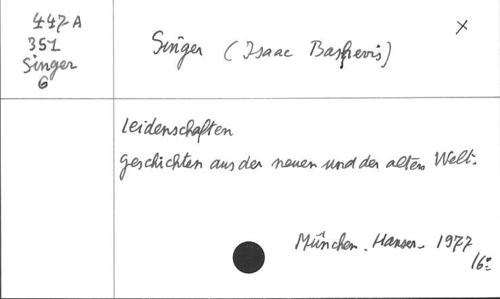 447 A
351
Singer
6
Singer (Isaac Bashevis)
X
Leidenschaften
Geschichten aus der neuen und der alten Welt.
München - Hanser - 1977
16°